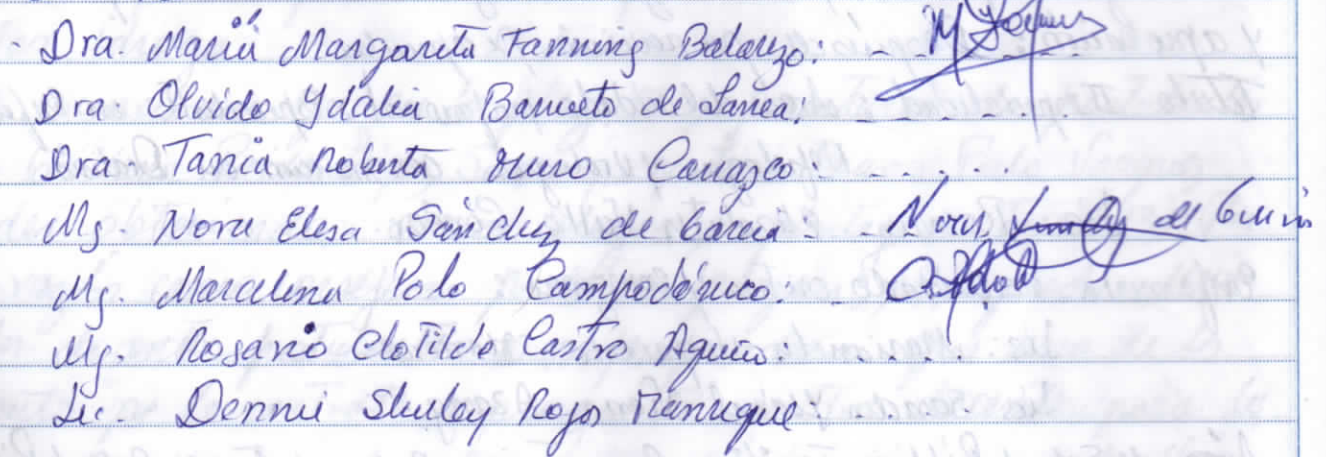 - Dra. María Margarita Fanning Balarezo: - - - -
Dra. Olvido Ydalia Barrueto de Larrea: - - - - -
Dra. Tania Roberta Muro Carrazco: - - . . .
Mg. Nora Elesa Sánchez de García: - Nora de García
Mg. Marcelina Polo Campodónico: -
Mg. Rosario Clotilde Castro Aquino: - . . .
Lic. Dennie Shirley Rojas Manrique: - . . . .